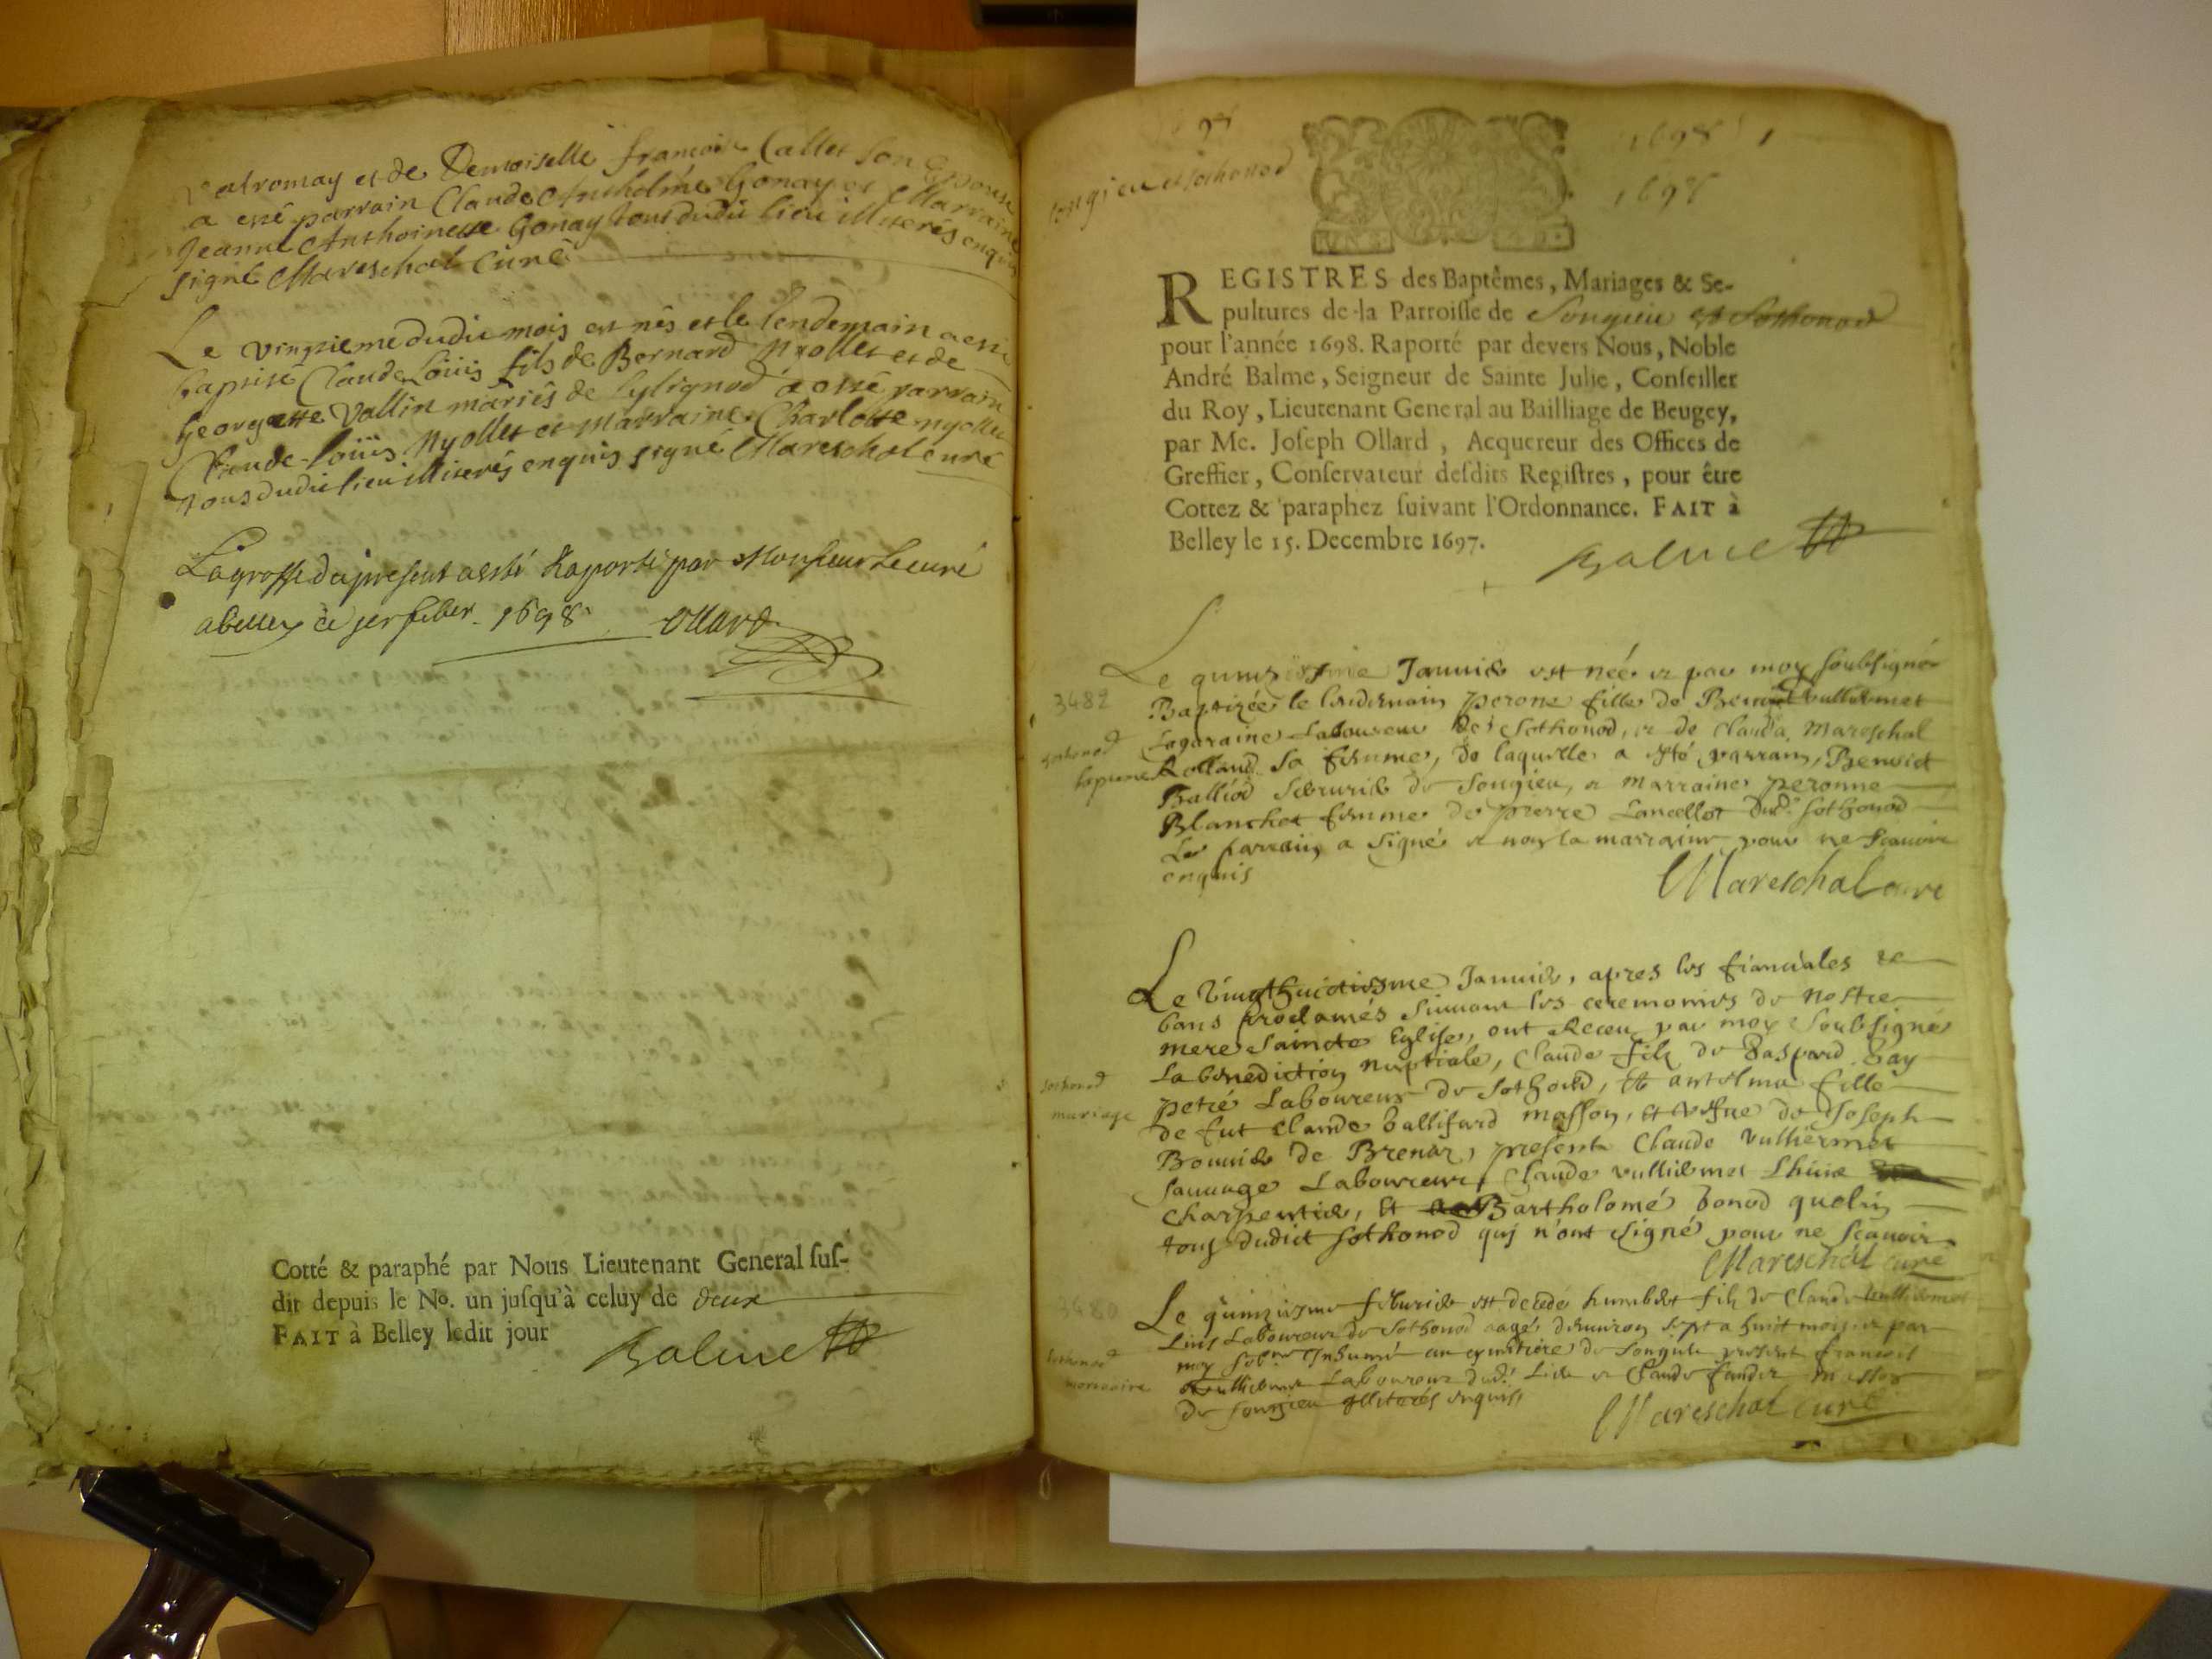 Valromay et de Demoiselle francoise Callet son Epouse
a esté parrain Claude Anthelme Gonay et Marraine
Jeanne Anthoinette Gonay tous dudit lieu illiterés enquis
signé Mareschal Curé
Le vingtieme dudit mois est nés et le lendemain a esté
baptisé Claude Loüis fils de Bernard Nyollet et de
Georgette Vallin mariés de a esté parrain
Claude-loüis Nyollet et marraine Charlotte nyollet
tous dudit lieu illiterés enquis signé Mareschal curé
La grosse du present a esté Raporté par Monsieur le curé
a Belley ce 1er febvr. 1698 Ollard
Cotté & paraphé par Nous Lieutenant General suſ-
dit depuis le No. un juſqu'à celuy de deux
FAIT à Belley ledit jour
Balme
1698 1
1698
songieu et sothonod
REGISTRES des Baptêmes, Mariages & Se-
pultures de la Parroiſſe de Songieu et Sothonod
pour l'année 1698. Raporté par devers Nous, Noble
André Balme, Seigneur de Sainte Julie, Conſeiller
du Roy, Lieutenant General au Bailliage de Beugey,
par Me. Joſeph Ollard, Acquereur des Offices de
Greffier, Conſervateur deſdits Regiſtres, pour être
Cottez & paraphez ſuivant l'Ordonnance. FAIT à
Belley le 15. Decembre 1697.
Balme
Le quinziesme Januier est née et par moy soubsigné
3482
Baptizée le lendemain perone fille de Benoict vulliermet
sothonod
Lagaraine Laboureur de Sothonod, et de Clauda Mareschal
bapteme
Rolland sa femme, de laquelle a esté parrain, Benoict
Balliod de Songieu, et marraine peronne
Blanchet femme de pierre Lancellot dud. Sothonod
Le parrain a signé et non la marraine pour ne scauoir
enquis
Mareschal curé
Le vingthuictiesme Januier, apres les fiancailes et
bans proclamés suiuant les ceremonies de nostre
mere Saincte Eglise, ont Receu par moy Soubsigné
La benediction nuptiale, Claude filz de Gaspard Gay
sothonod
petré Laboureur de Sothonod, et antelma fille
mariage
de fut Claude ballifard masson, et vefue de Joseph
Bouuier de Brenaz, presents Claude vulliermet
sauuage Laboureur, Claude vulliermet
charpentier, et Bartholomé bonod
tous dudict Sothonod qui n'ont signé pour ne scauoir
Mareschal curé
3480
Le quinziesme feburier est decedé humbert filz de Claude vulliermet
Luis Laboureur de Sothonod aagé denuiron sept a huit mois et par
sothonod
moy Inhumé au cymitiere de Songieu present francois
mortuaire
vulliermet Laboureur dud. Lieu et Claude
de Songieu illiterés enquis
Mareschal curé